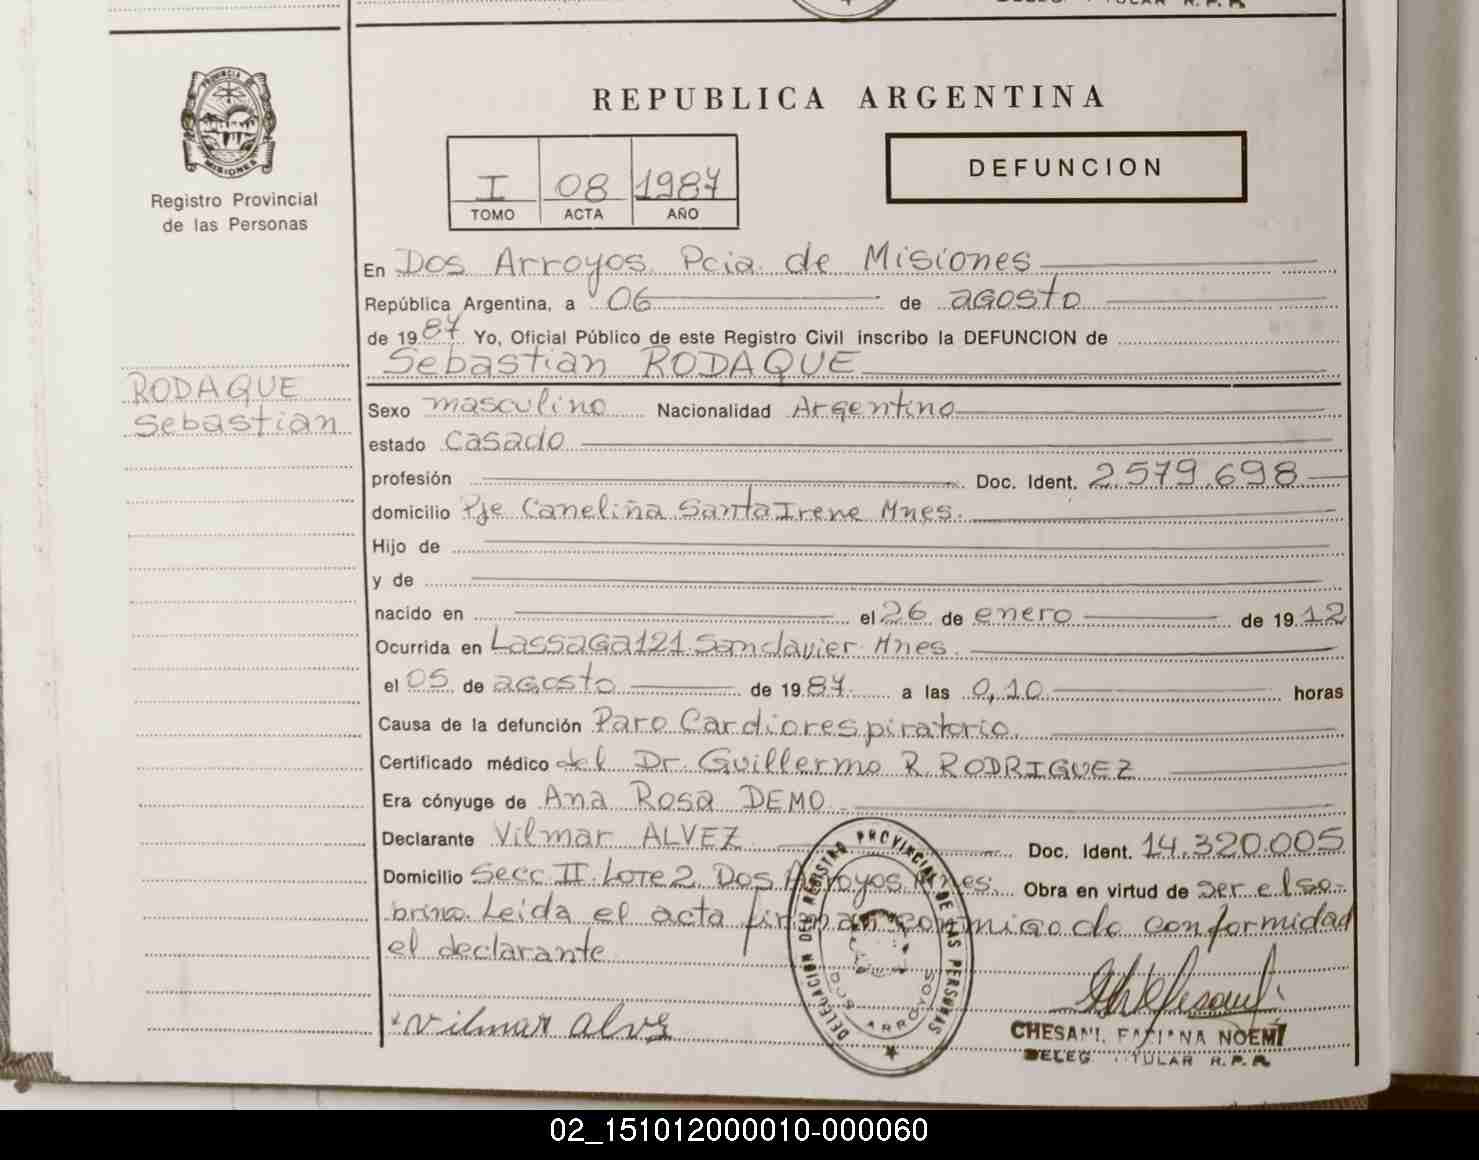 PROVINCIA DE
MISIONES
Registro Provincial
de las Personas
RODAQUE
Sebastian
REPUBLICA ARGENTINA
I 08 1987
TOMO ACTA AÑO
DEFUNCION
En Dos Arroyos Pcia. de Misiones
República Argentina, a 06 de agosto
de 1987 Yo, Oficial Público de este Registro Civil inscribo la DEFUNCION de
Sebastian RODAQUE
Sexo masculino Nacionalidad Argentino
estado Casado
profesión Doc. Ident. 2.579.698
domicilio Pje Caneliña Santa Irene Mnes.
Hijo de
y de
nacido en el 26 de enero de 1912
Ocurrida en Lassaga 121 San Javier Mnes.
el 05 de agosto de 1987 a las 0,10 horas
Causa de la defunción Paro Cardiorespiratorio.
Certificado médico del Dr. Guillermo R. RODRIGUEZ
Era cónyuge de Ana Rosa DEMO
Declarante Vilmar ALVEZ Doc. Ident. 14.320.005
Domicilio Secc II. Lote 2 Dos Arroyos Mnes. Obra en virtud de ser el so-
brino. Leida el acta firman conmigo de conformidad
el declarante
DELEGACION DEL REGISTRO PROVINCIAL DE LAS PERSONAS
DOS ARROYOS
Vilmar Alvz
CHESANI, FABIANA NOEMI
DELEG. TITULAR R.P.P.
02_151012000010-000060